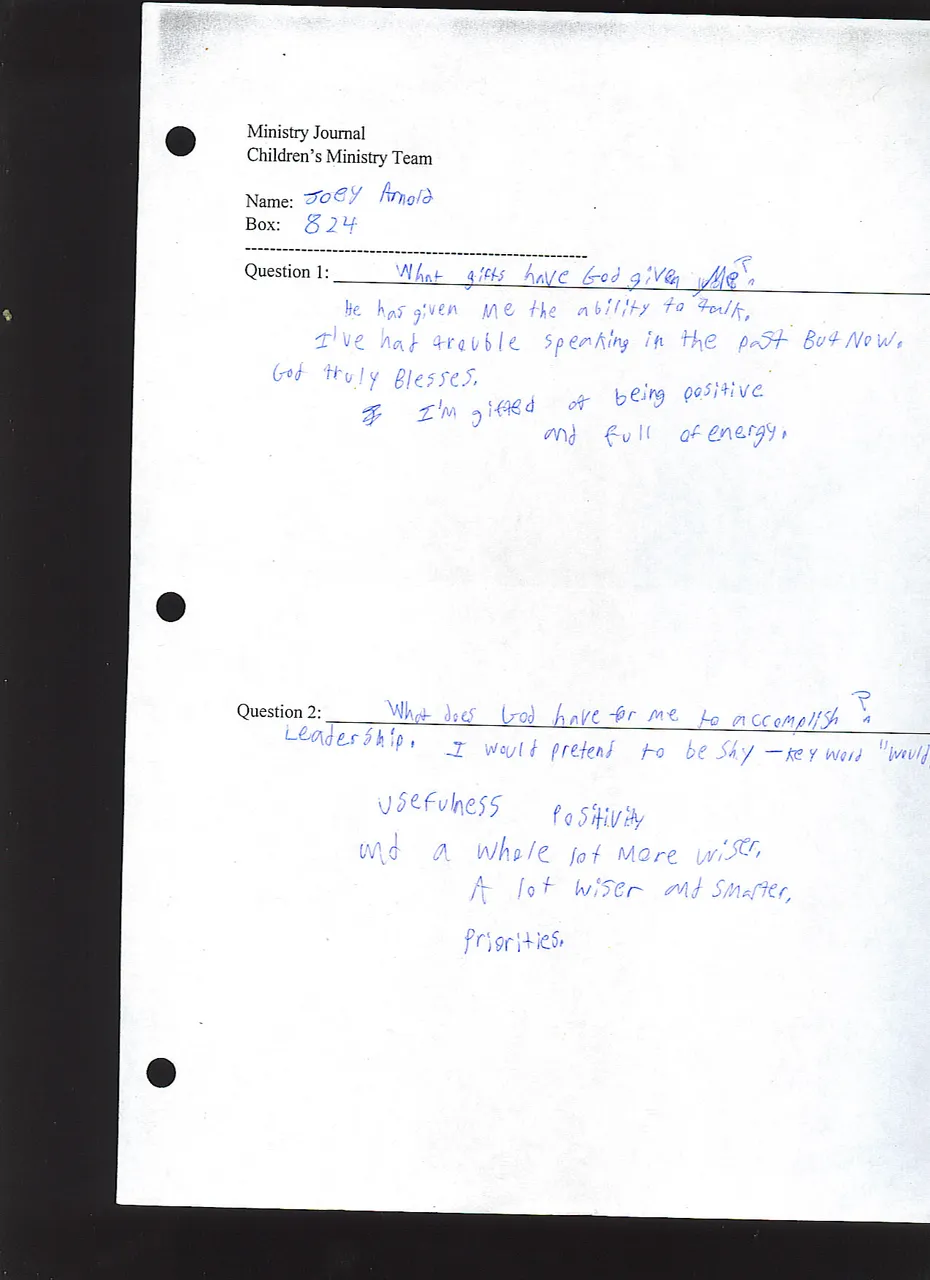 Ministry Journal
Children's Ministry Team
Name: Joey Arnold
Box: 824
Question 1: What gifts have God given Me?
He has given me the ability to talk.
I've had trouble speaking in the past But Now.
God truly Blesses.
I'm gifted of being positive
and full of energy.
Question 2: What does God have for me to accomplish?
Leadership. I would pretend to be shy - key word "would
Usefulness Positivity
and a whole lot more wiser.
A lot wiser and smarter.
Priorities.